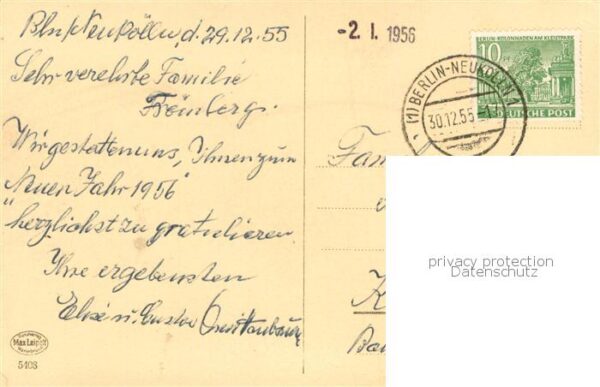 Bln/Neukölln, d. 29.12.55
Sehr verehrte Familie
Freiberg.
Wir gestatten uns, Ihnen zum
Neuen Jahr 1956
herzlichst zu gratulieren
Ihre ergebensten
Elise u. Gustav
-2. I. 1956
BERLIN-KOLONNADEN AM KLEISTPARK
10
DEUTSCHE POST
(1) BERLIN-NEUKÖLLN 1
30.12.55-17
Fam
K
privacy protection
Datenschutz
Max Leipelt
5408